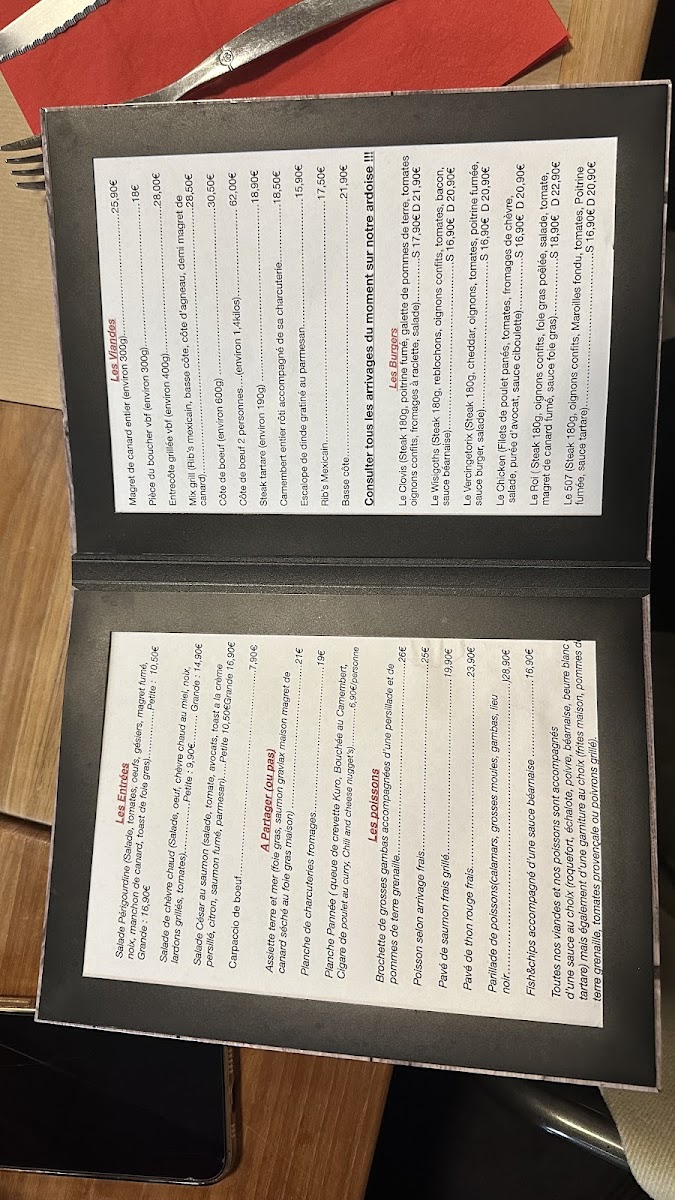 Les Entrées
Salade Périgourdine (Salade, tomates, oeufs, gésiers, magret fumé,
noix, manchon de canard, toast de foie gras)..........Petite : 10,50€
Grande : 16,90€
Salade de chèvre chaud (Salade, oeuf, chèvre chaud au miel, noix,
lardons grillés, tomates)..............Petite : 9,90€......... Grande : 14,90€
Salade César au saumon (salade, tomate, avocats, toast a la crème
persillé, citron, saumon fumé, parmesan).....Petite 10,50€Grande 16,90€
Carpaccio de boeuf..........................................................7,90€
A Partager (ou pas)
Assiette terre et mer (foie gras, saumon gravlax maison magret de
canard séché au foie gras maison)..........................................21€
Planche de charcuteries fromages..........................................19€
Planche Pannée ( queue de crevette Kuro, Bouchée au Camembert,
Cigare de poulet au curry, Chili and cheese nugget's)..........6,90€/personne
Les poissons
Brochette de grosses gambas accompagnées d'une persillade et de
pommes de terre grenaille..................................................26€
Poisson selon arrivage frais...............................................25€
Pavé de saumon frais grillé...............................................19,90€
Pavé de thon rouge frais..................................................23,90€
Parillade de poissons(calamars, grosses moules, gambas, lieu
noir.....................................................................)28,90€
Fish&chips accompagné d'une sauce béarnaise .......................16,90€
Toutes nos viandes et nos poissons sont accompagnés
d'une sauce au choix (roquefort, échalote, poivre, béarnaise, beurre blanc
tartare) mais également d'une garniture au choix (frites maison, pommes de
terre grenaille, tomates provençale ou poivrons grillé).
Les Viandes
Magret de canard entier (environ 300g)..................................25,90€
Pièce du boucher vbf (environ 300g).....................................18€
Entrecôte grillée vbf (environ 400g)....................................28,00€
Mix grill (Rib's mexicain, basse côte, côte d'agneau, demi magret de
canard)...................................................................28,50€
Côte de boeuf (environ 600g)............................................30,50€
Côte de bœuf 2 personnes....(environ 1,4kilos)....................... 62,00€
Steak tartare (environ 190g)............................................18,90€
Camembert entier rôti accompagné de sa charcuterie....................18,50€
Escalope de dinde gratiné au parmesan..................................15,90€
Rib's Mexicain...........................................................17,50€
Basse côte...............................................................21,90€
Consulter tous les arrivages du moment sur notre ardoise !!!
Les Burgers
Le Clovis (Steak 180g, poitrine fumé, galette de pommes de terre, tomates
oignons confits, fromages à raclette, salade)..........S 17,90€ D 21,90€
Le Wisigoths (Steak 180g, reblochons, oignons confits, tomates, bacon,
sauce béarnaise)........................................S 16,90€ D 20,90€
Le Vercingetorix (Steak 180g, cheddar, oignons, tomates, poitrine fumée,
sauce burger, salade)...................................S 16,90€ D 20,90€
Le Chicken (Filets de poulet panés, tomates, fromages de chèvre,
salade, purée d'avocat, sauce ciboulette)...............S 16,90€ D 20,90€
Le Roi ( Steak 180g, oignons confits, foie gras poêlée, salade, tomate,
magret de canard fumé, sauce foie gras).................S 18,90€ D 22,90€
Le 507 (Steak 180g, oignons confits, Maroilles fondu, tomates, Poitrine
fumée, sauce tartare)...................................S 16,90€ D 20,90€